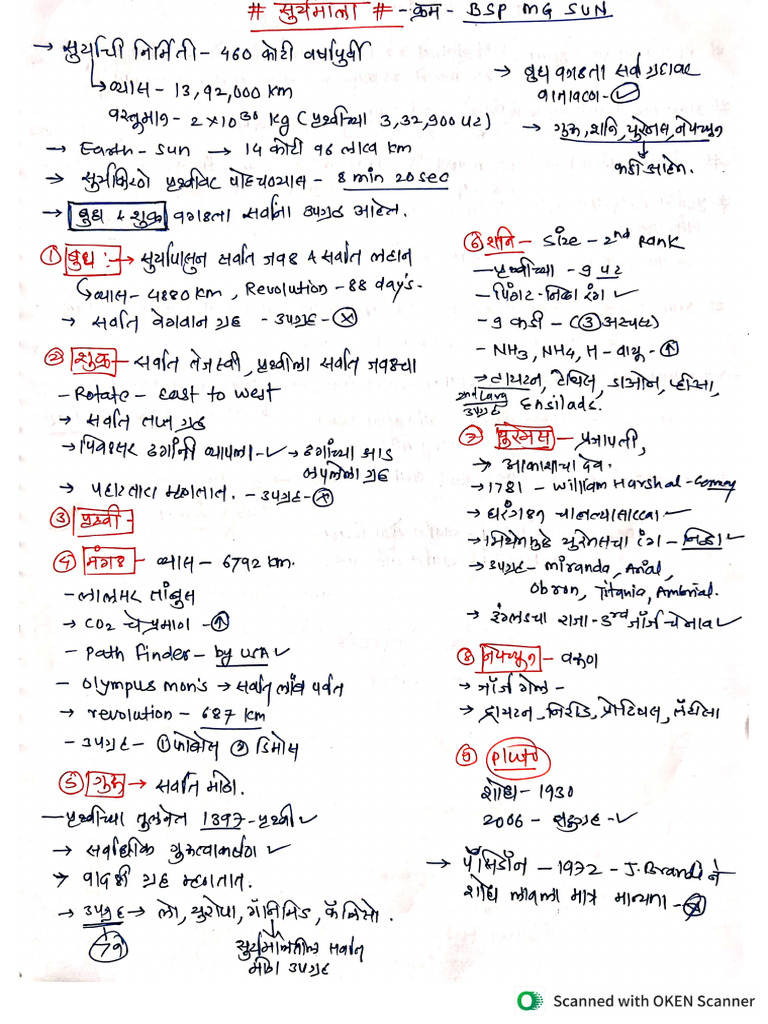 # सुर्यमाला # - क्रम - BSP MG SUN
→ सुर्याची निर्मिती - 460 कोटी वर्षापुर्वी
↳ व्यास - 13,92,000 km
वस्तुमान - 2 × 10³⁰ kg (पृथ्वीच्या 3,32,900 पट)
→ Earth - Sun → 14 कोटी 96 लाख km
→ सुर्यकिरणे पृथ्वीवर पोहचण्यास - 8 min 20 sec
→ बुध & शुक्र वगळता सर्वांना उपग्रह आहेत.
① बुध :- → सुर्यापासुन सर्वात जवळ & सर्वात लहान
↳ व्यास - 4880 km, Revolution - 88 day's.
→ सर्वात वेगवान ग्रह - उपग्रह - ⓧ
② शुक्र - सर्वात तेजस्वी, पृथ्वीला सर्वात जवळचा
- Rotate - East to West
→ सर्वात तप्त ग्रह
→ ढगांनी व्यापला - ✓ → ढगांच्या आड
लपलेला ग्रह
→ पहाटतारा म्हणतात. - उपग्रह - ⓧ
③ पृथ्वी -
④ मंगळ - व्यास - 6792 km.
- लालसर तांबुस
→ CO2 चे प्रमाण - ↑
- Path finder - by USA ✓
- Olympus mon's → सर्वात लांब पर्वत
→ revolution - 687 km
- उपग्रह - ① फोबोस ② डिमोस
⑤ गुरू → सर्वात मोठा.
- पृथ्वीच्या तुलनेत 1397 - पृथ्वी ✓
→ सर्वाधिक गुरुत्वाकर्षण ✓
→ वादळी ग्रह म्हणतात.
→ उपग्रह → लो, युरोपा, गॅनिमिड, कॅलिस्टो.
79
सुर्यमालेतील सर्वात
मोठा उपग्रह
→ बुध वगळता सर्व ग्रहांवर
वातावरण - ✓
→ गुरू, शनि, युरेनस, नेपच्युन
कडी आहेत.
⑥ शनि - Size - 2nd Rank
- पृथ्वीच्या - 9 पट
- पिंगट - निळा रंग ✓
- 9 कडी - (③ अस्पष्ट)
- NH3, NH4, H - वायू - ↑
→ टायटन, टेथिस, डाओन, ऱ्हीआ,
2nd Larg उपग्रह Ensilads.
⑦ युरेनस - प्रजापती,
→ आकाशाचा देव.
→ 1781 - William Harshal - Germany
→ घरंगळत चालल्यासारखा ✓
→ मिथेनमुळे युरेनसचा रंग - निळा ✓
→ उपग्रह - Miranda, Arial,
Obron, Titania, Ambrial.
→ इंग्लंडचा राजा - 3rd जॉर्ज चे नाव ✓
⑧ नेपच्युन - वरुण
→ जॉर्ज गेल -
→ ट्रायटन, निरीड, प्रोटियस, लॅरीसा
⑨ Pluto
शोध - 1930
2006 - ✓
→ पॅसिडॉन - 1972 - J. Brandi ने
शोध लावला मात्र मान्यता - ⓧ
Scanned with OKEN Scanner